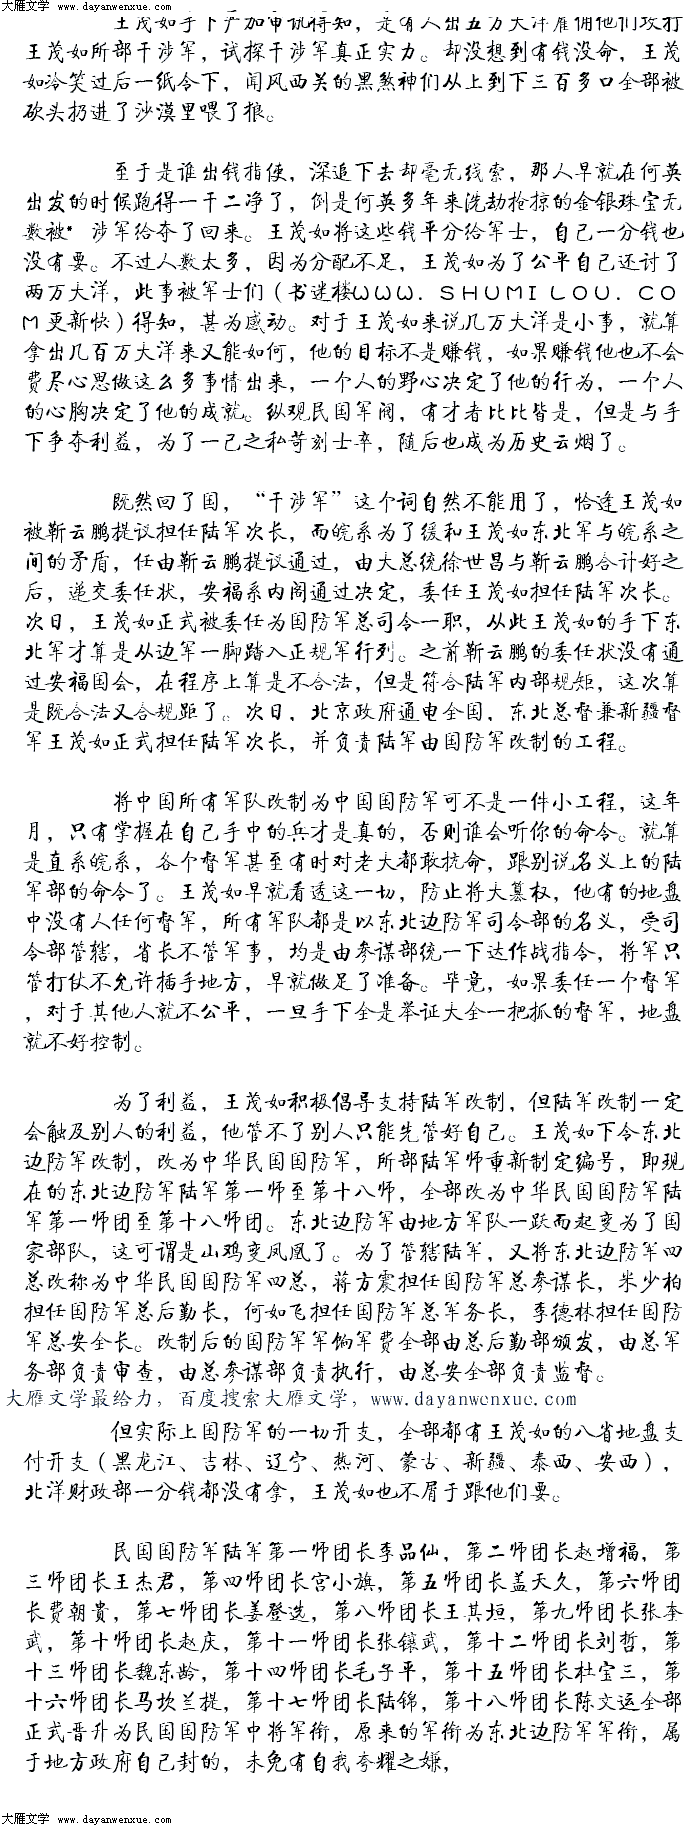 大雁文学 www.dayanwenxue.com
王茂如手下严加审讯得知，是有人出五万大洋雇佣他们攻打
王茂如所部干涉军，试探干涉军真正实力。却没想到有钱没命，王茂
如冷笑过后一纸令下，闻风西关的黑煞神们从上到下三百多口全部被
砍头扔进了沙漠里喂了狼。
至于是谁出钱指使，深追下去却毫无线索，那人早就在何英
出发的时候跑得一干二净了，倒是何英多年来洗劫抢掠的金银珠宝无
数被* 涉军给夺了回来。王茂如将这些钱平分给军士，自己一分钱也
没有要。不过人数太多，因为分配不足，王茂如为了公平自己还讨了
两万大洋，此事被军士们（书迷楼WWW．SHUMILOU．CO
M更新快）得知，甚为感动。对于王茂如来说几万大洋是小事，就算
拿出几百万大洋来又能如何，他的目标不是赚钱，如果赚钱他也不会
费尽心思做这么多事情出来，一个人的野心决定了他的行为，一个人
的心胸决定了他的成就。纵观民国军阀，有才者比比皆是，但是与手
下争夺利益，为了一己之私苛刻士卒，随后也成为历史云烟了。
既然回了国，“干涉军”这个词自然不能用了，恰逢王茂如
被靳云鹏提议担任陆军次长，而皖系为了缓和王茂如东北军与皖系之
间的矛盾，任由靳云鹏提议通过，由大总统徐世昌与靳云鹏合计好之
后，递交委任状，安福系内阁通过决定，委任王茂如担任陆军次长。
次日，王茂如正式被委任为国防军总司令一职，从此王茂如的手下东
北军才算是从边军一脚踏入正规军行列。之前靳云鹏的委任状没有通
过安福国会，在程序上算是不合法，但是符合陆军内部规矩，这次算
是既合法又合规距了。次日，北京政府通电全国，东北总督兼新疆督
军王茂如正式担任陆军次长，并负责陆军由国防军改制的工程。
将中国所有军队改制为中国国防军可不是一件小工程，这年
月，只有掌握在自己手中的兵才是真的，否则谁会听你的命令。就算
是直系皖系，各个督军甚至有时对老大都敢抗命，跟别说名义上的陆
军部的命令了。王茂如早就看透这一切，防止将大篡权，他有的地盘
中没有人任何督军，所有军队都是以东北边防军司令部的名义，受司
令部管辖，省长不管军事，均是由参谋部统一下达作战指令，将军只
管打仗不允许插手地方，早就做足了准备。毕竟，如果委任一个督军
，对于其他人就不公平，一旦手下全是举证大全一把抓的督军，地盘
就不好控制。
为了利益，王茂如积极倡导支持陆军改制，但陆军改制一定
会触及别人的利益，他管不了别人只能先管好自己。王茂如下令东北
边防军改制，改为中华民国国防军，所部陆军师重新制定编号，即现
在的东北边防军陆军第一师至第十八师，全部改为中华民国国防军陆
军第一师团至第十八师团。东北边防军由地方军队一跃而起变为了国
家部队，这可谓是山鸡变凤凰了。为了管辖陆军，又将东北边防军四
总改称为中华民国国防军四总，蒋方震担任国防军总参谋长，米少柏
担任国防军总后勤长，何如飞担任国防军总军务长，李德林担任国防
军总安全长。改制后的国防军军饷军费全部由总后勤部颁发，由总军
务部负责审查，由总参谋部负责执行，由总安全部负责监督。
大雁文学最给力，百度搜索大雁文学，www.dayanwenxue.com
但实际上国防军的一切开支，全部都有王茂如的八省地盘支
付开支（黑龙江、吉林、辽宁、热河、蒙古、新疆、泰西、安西），
北洋财政部一分钱都没有拿，王茂如也不屑于跟他们要。
民国国防军陆军第一师团长李品仙，第二师团长赵增福，第
三师团长王杰君，第四师团长宫小旗，第五师团长盖天久，第六师团
长费朝贵，第七师团长姜登选，第八师团长王其垣，第九师团长张奎
武，第十师团长赵庆，第十一师团长张镶武，第十二师团长刘哲，第
十三师团长魏东龄，第十四师团长毛子平，第十五师团长杜宝三，第
十六师团长马坎兰提，第十七师团长陆锦，第十八师团长陈文运全部
正式晋升为民国国防军中将军衔，原来的军衔为东北边防军军衔，属
于地方政府自己封的，未免有自我夸耀之嫌，
大雁文学 www.dayanwenxue.com